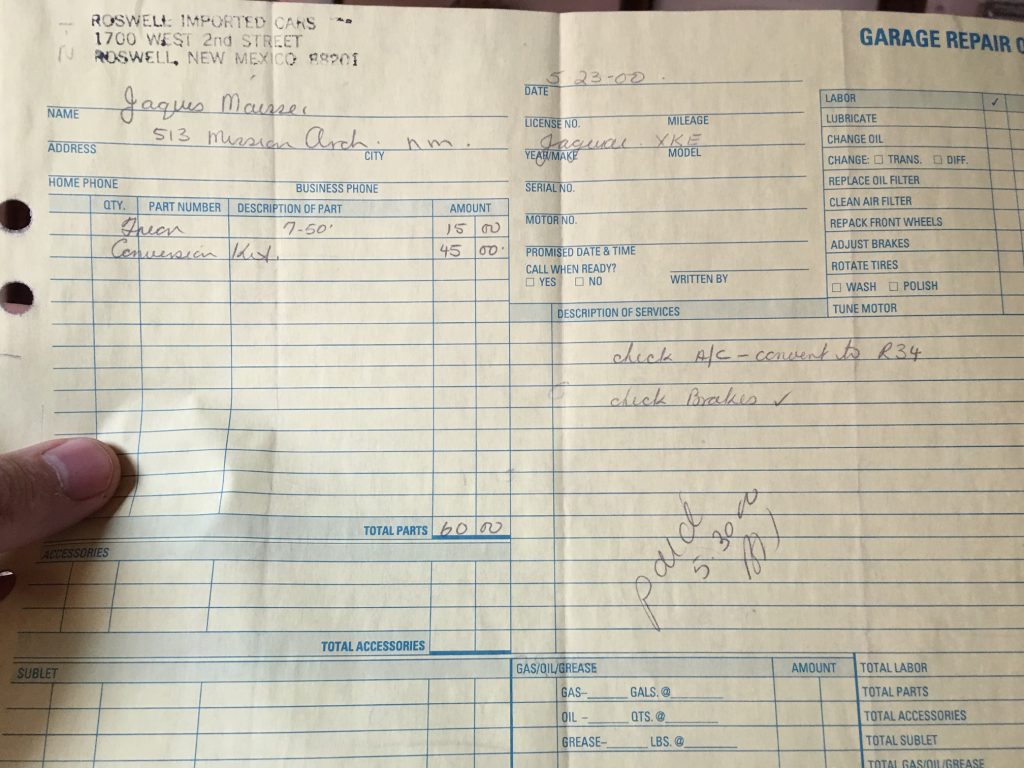 ROSWELL IMPORTED CARS
1700 WEST 2nd STREET
ROSWELL, NEW MEXICO 88201
GARAGE REPAIR O
NAME Jaques
ADDRESS 513 Mission Arch. n.m.
CITY
HOME PHONE BUSINESS PHONE
DATE 5 23-00
LICENSE NO. MILEAGE
Jaguar XKE
YEAR/MAKE MODEL
SERIAL NO.
MOTOR NO.
PROMISED DATE & TIME
CALL WHEN READY?
☐ YES ☐ NO WRITTEN BY
LABOR ✓
LUBRICATE
CHANGE OIL
CHANGE: ☐ TRANS. ☐ DIFF.
REPLACE OIL FILTER
CLEAN AIR FILTER
REPACK FRONT WHEELS
ADJUST BRAKES
ROTATE TIRES
☐ WASH ☐ POLISH
TUNE MOTOR
QTY. PART NUMBER DESCRIPTION OF PART AMOUNT
Freon 7-50 15 00
Conversion Kit. 45 00
TOTAL PARTS 60 00
DESCRIPTION OF SERVICES
check A/C - convert to R34
check Brakes ✓
paid
5.30 00
ACCESSORIES
TOTAL ACCESSORIES
SUBLET
GAS/OIL/GREASE AMOUNT
GAS–______ GALS. @______
OIL –______ QTS. @______
GREASE–______ LBS. @______
TOTAL LABOR
TOTAL PARTS
TOTAL ACCESSORIES
TOTAL SUBLET
TOTAL GAS/OIL/GREASE